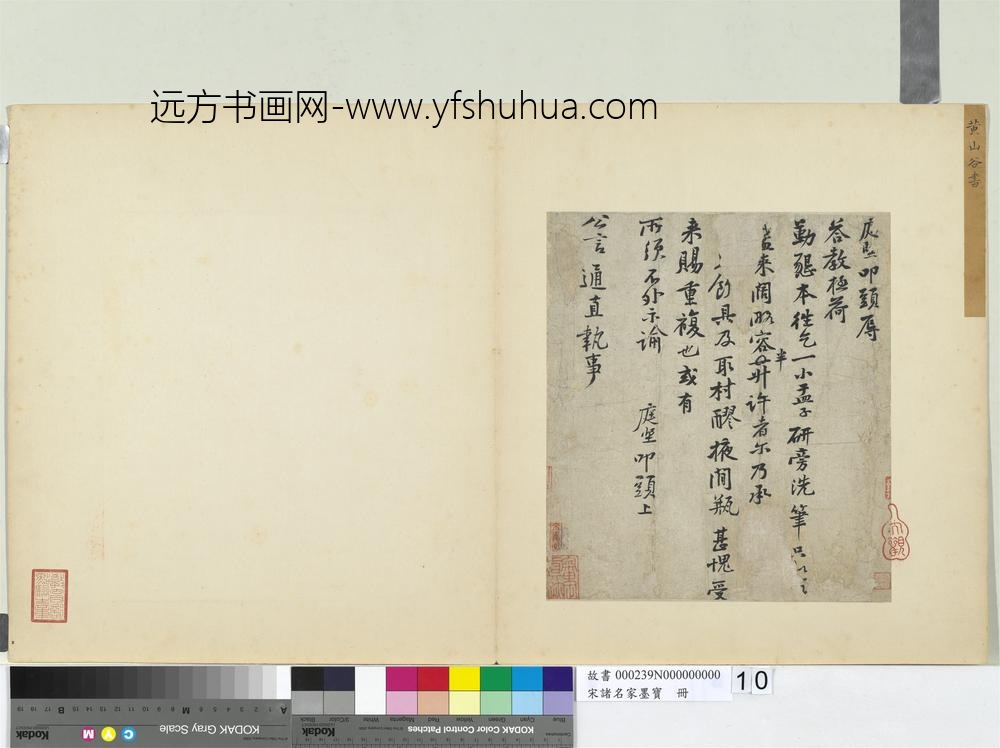 远方书画网-www.yfshuhua.com
黄山谷書
庭堅叩頭辱
答教極荷
勤懇本徃乞一小盂子研旁洗筆
盂来闊略容半升許者尔乃承
飲具及取村醪掖間瓶甚愧受
来賜重複也或有
所須不外示諭
庭坚叩頭上
公言通直執事
故書 000239N000000000
宋諸名家墨寶 冊
10
KODAK Gray Scale
C Y M
KODAK Color Control Patches
Kodak
Blue Cyan Green Yellow Red Magenta White 3/Color Black
A 1 2 3 4 5 6 M 8 9 10 11 12 13 14 15 B 17 18 19